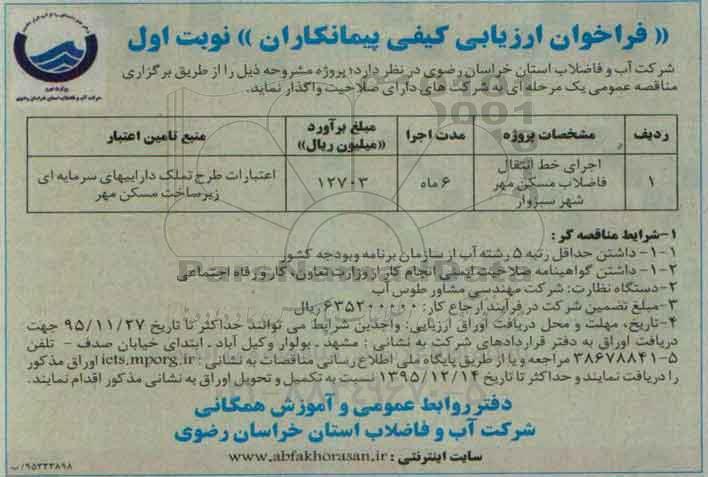 « فراخوان ارزیابی کیفی پیمانکاران » نوبت اول
شرکت آب و فاضلاب استان خراسان رضوی در نظر دارد؛ پروژه مشروحه ذیل را از طریق برگزاری
مناقصه عمومی یک مرحله ای به شرکت های دارای صلاحیت واگذار نماید.
وزارت نیرو
شرکت آب و فاضلاب استان خراسان رضوی
ردیف مشخصات پروژه مدت اجرا مبلغ برآورد «میلیون ریال» منبع تامین اعتبار
۱ اجرای خط انتقال فاضلاب مسکن مهر شهر سبزوار ۶ ماه ۱۲۷۰۳ اعتبارات طرح تملک داراییهای سرمایه ای زیرساخت مسکن مهر
۱-شرایط مناقصه گر :
۱-۱- داشتن حداقل رتبه ۵ رشته آب از سازمان برنامه وبودجه کشور
۱-۲- داشتن گواهینامه صلاحیت ایمنی انجام کار از وزارت تعاون، کار و رفاه اجتماعی
۲-دستگاه نظارت: شرکت مهندسی مشاور طوس آب
۳-مبلغ تضمین شرکت در فرآیند ارجاع کار: ۶۳۵۲۰۰۰۰۰ ریال
۴-تاریخ، مهلت و محل دریافت اوراق ارزیابی: واجدین شرایط می توانند حداکثر تا تاریخ ۹۵/۱۱/۲۷ جهت
دریافت اوراق به دفتر قراردادهای شرکت به نشانی : مشهد ـ بولوار وکیل آباد ـ ابتدای خیابان صدف - تلفن
۵-۳۸۶۷۸۸۴۱ مراجعه و یا از طریق پایگاه ملی اطلاع رسانی مناقصات به نشانی : iets.mporg.ir اوراق مذکور
را دریافت نمایند و حداکثر تا تاریخ ۱۳۹۵/۱۲/۱۴ نسبت به تکمیل و تحویل اوراق به نشانی مذکور اقدام نمایند.
دفتر روابط عمومی و آموزش همگانی
شرکت آب و فاضلاب استان خراسان رضوی
سایت اینترنتی : www.abfakhorasan.ir
۹۵۲۳۳۸۹۸/ب